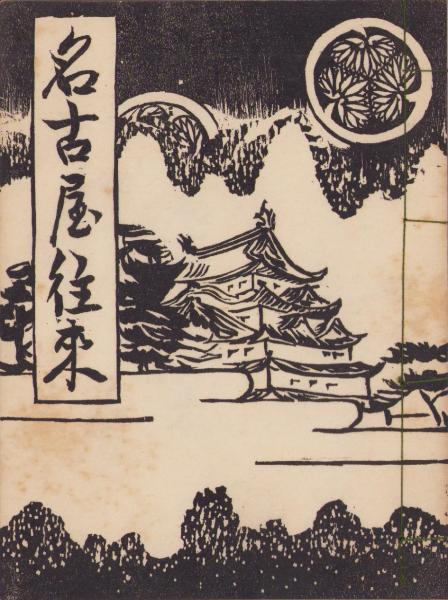 名古屋往来